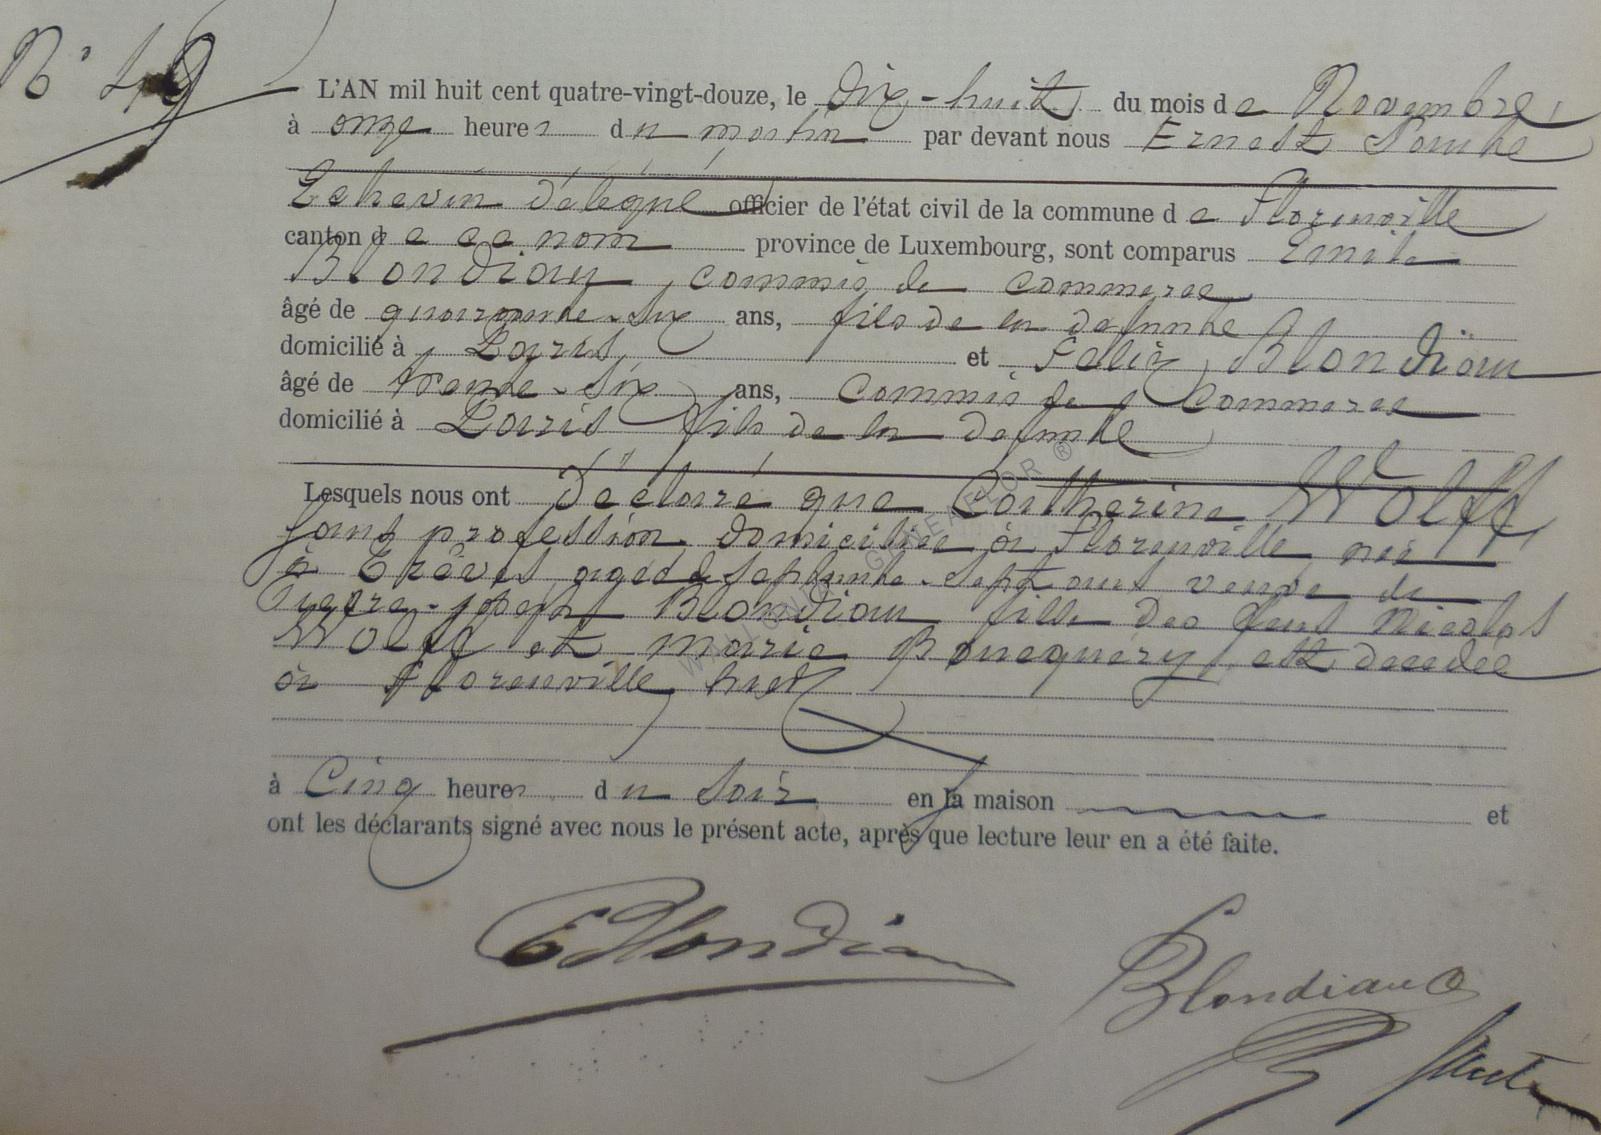 N° 49
L'AN mil huit cent quatre-vingt-douze, le dix-huit du mois de Novembre,
à onze heures du matin par devant nous Ernest
Echevin délégué officier de l'état civil de la commune de Florenville
canton de ce nom province de Luxembourg, sont comparus Emile
Blondiau, commis de commerce
âgé de quarante-six ans, fils de la defunte
domicilié à Paris et Felix Blondiau
âgé de trente-six ans, commis de commerce
domicilié à Paris fils de la defunte
Lesquels nous ont déclaré que Catherine Wolff
sans profession domiciliée à Florenville née
à Trèves agée de septante-sept ans veuve de
Pierre-Joseph Blondiau fille des feus Nicolas
Wolff et Marie Boucquery, est decedée
à Florenville, hier
à Cinq heures du soir en la maison et
ont les déclarants signé avec nous le présent acte, après que lecture leur en a été faite.
EBlondiau
Blondiau
WALLONIA GENEAFLOR ®